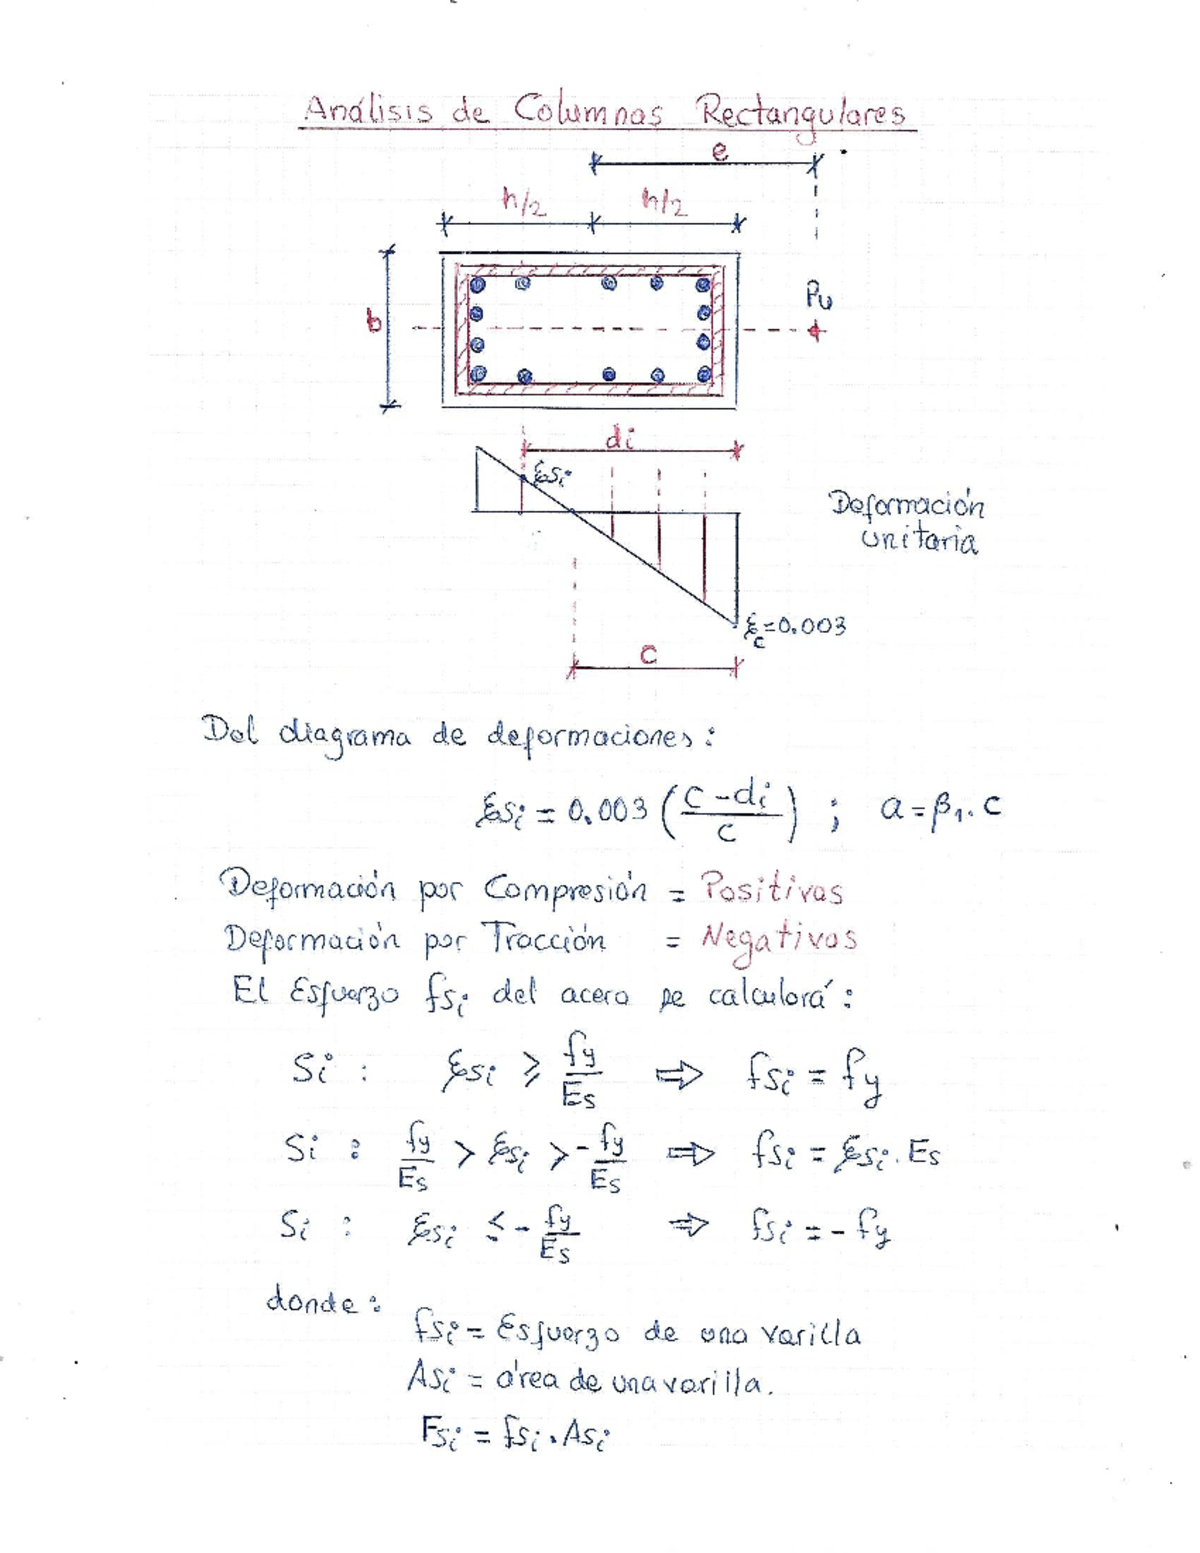 Análisis de Columnas Rectangulares
e
h/2 h/2
b
Pu
di
εsi
Deformación
unitaria
εc=0.003
c
Del diagrama de deformaciones:
εsi = 0.003 (c-di / c) ; a = β1.c
Deformación por Compresión = Positivas
Deformación por Tracción = Negativas
El Esfuerzo fsi del acero se calculará:
Si : εsi ≥ fy/Es ⇒ fsi = fy
Si : fy/Es > εsi > -fy/Es ⇒ fsi = εsi.Es
Si : εsi ≤ -fy/Es ⇒ fsi = -fy
donde:
fsi = Esfuerzo de una varilla
Asi = área de una varilla.
Fsi = fsi.Asi